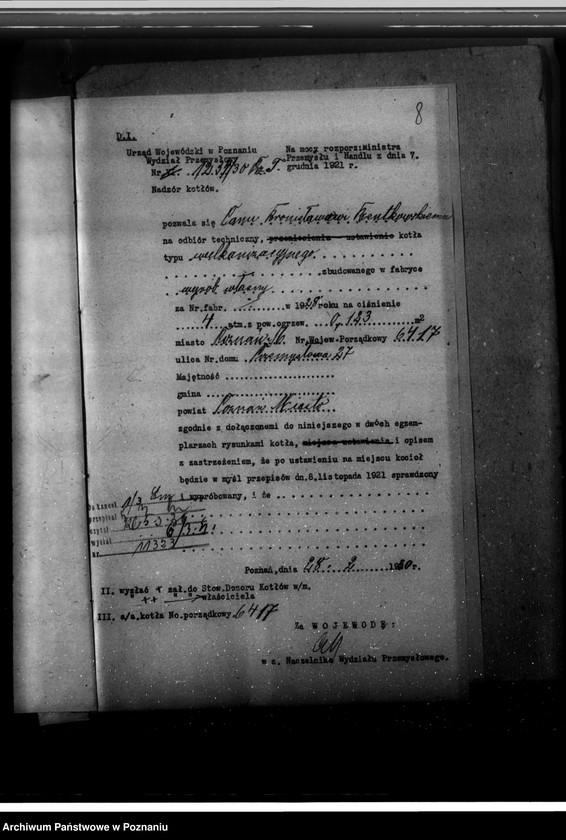 8
D.I.
Urząd Wojewódzki w Poznaniu
Wydział Przemysłowy
Nr. 1237/30 Pz.T.
Nadzór kotłów.
Na mocy rozporz:Ministra
Przemysłu i Handlu z dnia 7.
grudnia 1921 r.
pozwala się Panu Bronisławowi
na odbiór techniczny, przeniesienie ustawienie kotła
typu wulkanizacyjnego
zbudowanego w fabryce
wyrób własny
za Nr.fabr. w 1928 roku na ciśnienie
4 atm.z pow.ogrzew. 0,123 m2
miasto Poznań Nr.Wojew.Porządkowy 6417
ulica Nr.domu Przemysłowa 27
Majętność
gmina
powiat Poznań Miasto
zgodnie z dołączonemi do niniejszego w dwóch egzem-
plarzach rysunkami kotła, miejsca ustawienia i opisem
z zastrzeżeniem, że po ustawieniu na miejscu kocioł
będzie w myśl przepisów dn.8,listopada 1921 sprawdzony
i wypróbowany, i że
11323
Poznań,dnia 28. 2. 1930r.
II. wysłać + zał.do Stow.Dozoru Kotłów w/m.
++ " " właściciela
III. a/a.kotła No.porządkowy 6417
Za WOJEWODĘ:
w z. Naczelnika Wydziału Przemysłowego.
Archiwum Państwowe w Poznaniu